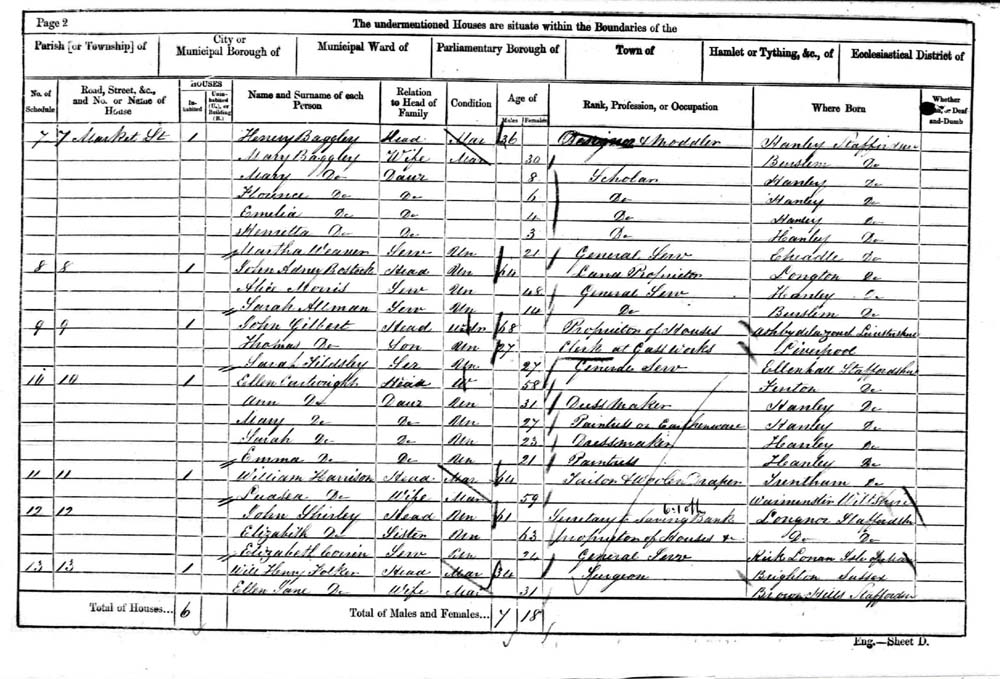 Page 2 The undermentioned Houses are situate within the Boundaries of the
Parish [or Township] of City or Municipal Borough of Municipal Ward of Parliamentary Borough of Town of Hamlet or Tything, &c., of Ecclesiastical District of
No. of Schedule Road, Street, &c., and No. or Name of House HOUSES Inhabited Uninhabited (U.), or Building (B.) Name and Surname of each Person Relation to Head of Family Condition Age of Males Females Rank, Profession, or Occupation Where Born Whether or Deaf-and-Dumb
7 7 Market St 1 Henry Baggley Head Mar 36 Designer & Moddler Hanley
Mary Baggley Wife Mar 30 Burslem Do
Mary Do Daur 8 Scholar Hanley Do
Florence Do Do 6 Do Hanley Do
Emelia Do Do 4 Do Hanley Do
Henretta Do Do 3 Do Hanley Do
Martha Weaver Serv Un 21 General Serv Cheadle Do
8 8 1 John Adney Bostock Head Un 64 Land Propietor Longton Do
Alice Morris Serv Un 48 General Serv Hanley Do
Sarah Allman Serv Un 14 Do Burslem Do
9 9 1 John Gilbert Head Widr 68 Propuitor of Houses
Thomas Do Son Un 27 Clerk at Gass Works Liverpool
Sarah Ser Un 27 General Serv Ellenhall
10 10 1 Ellen Cartwright Head W 58 Fenton Do
Ann Do Daur Un 31 Dress Maker Hanley Do
Mary Do Do Un 27 Paintress on Earthenware Hanley Do
Sarah Do Do Un 23 Dressmaker Hanley Do
Emma Do Do Un 21 Paintress Hanley Do
11 11 1 William Harrison Head Mar 64 Tailor & Woolen Draper Trentham Do
Do Wife Mar 59 Warminster Wiltshire
12 12 1 John Shirley Head Un 61 Secretary to Saving Bank Longnor
Elizabeth Do Sister Un 63 Propuitor of Houses & Do Do
Elizabeth Serv Un 24 General Serv Kirk Lonan Isle of Man
13 13 1 Will Henry Folker Head Mar 34 Surgeon Brighton Sussex
Ellen Jane Do Wife Mar 31 Brown Hills
Total of Houses... 6 Total of Males and Females... 7 18
Eng.—Sheet D.